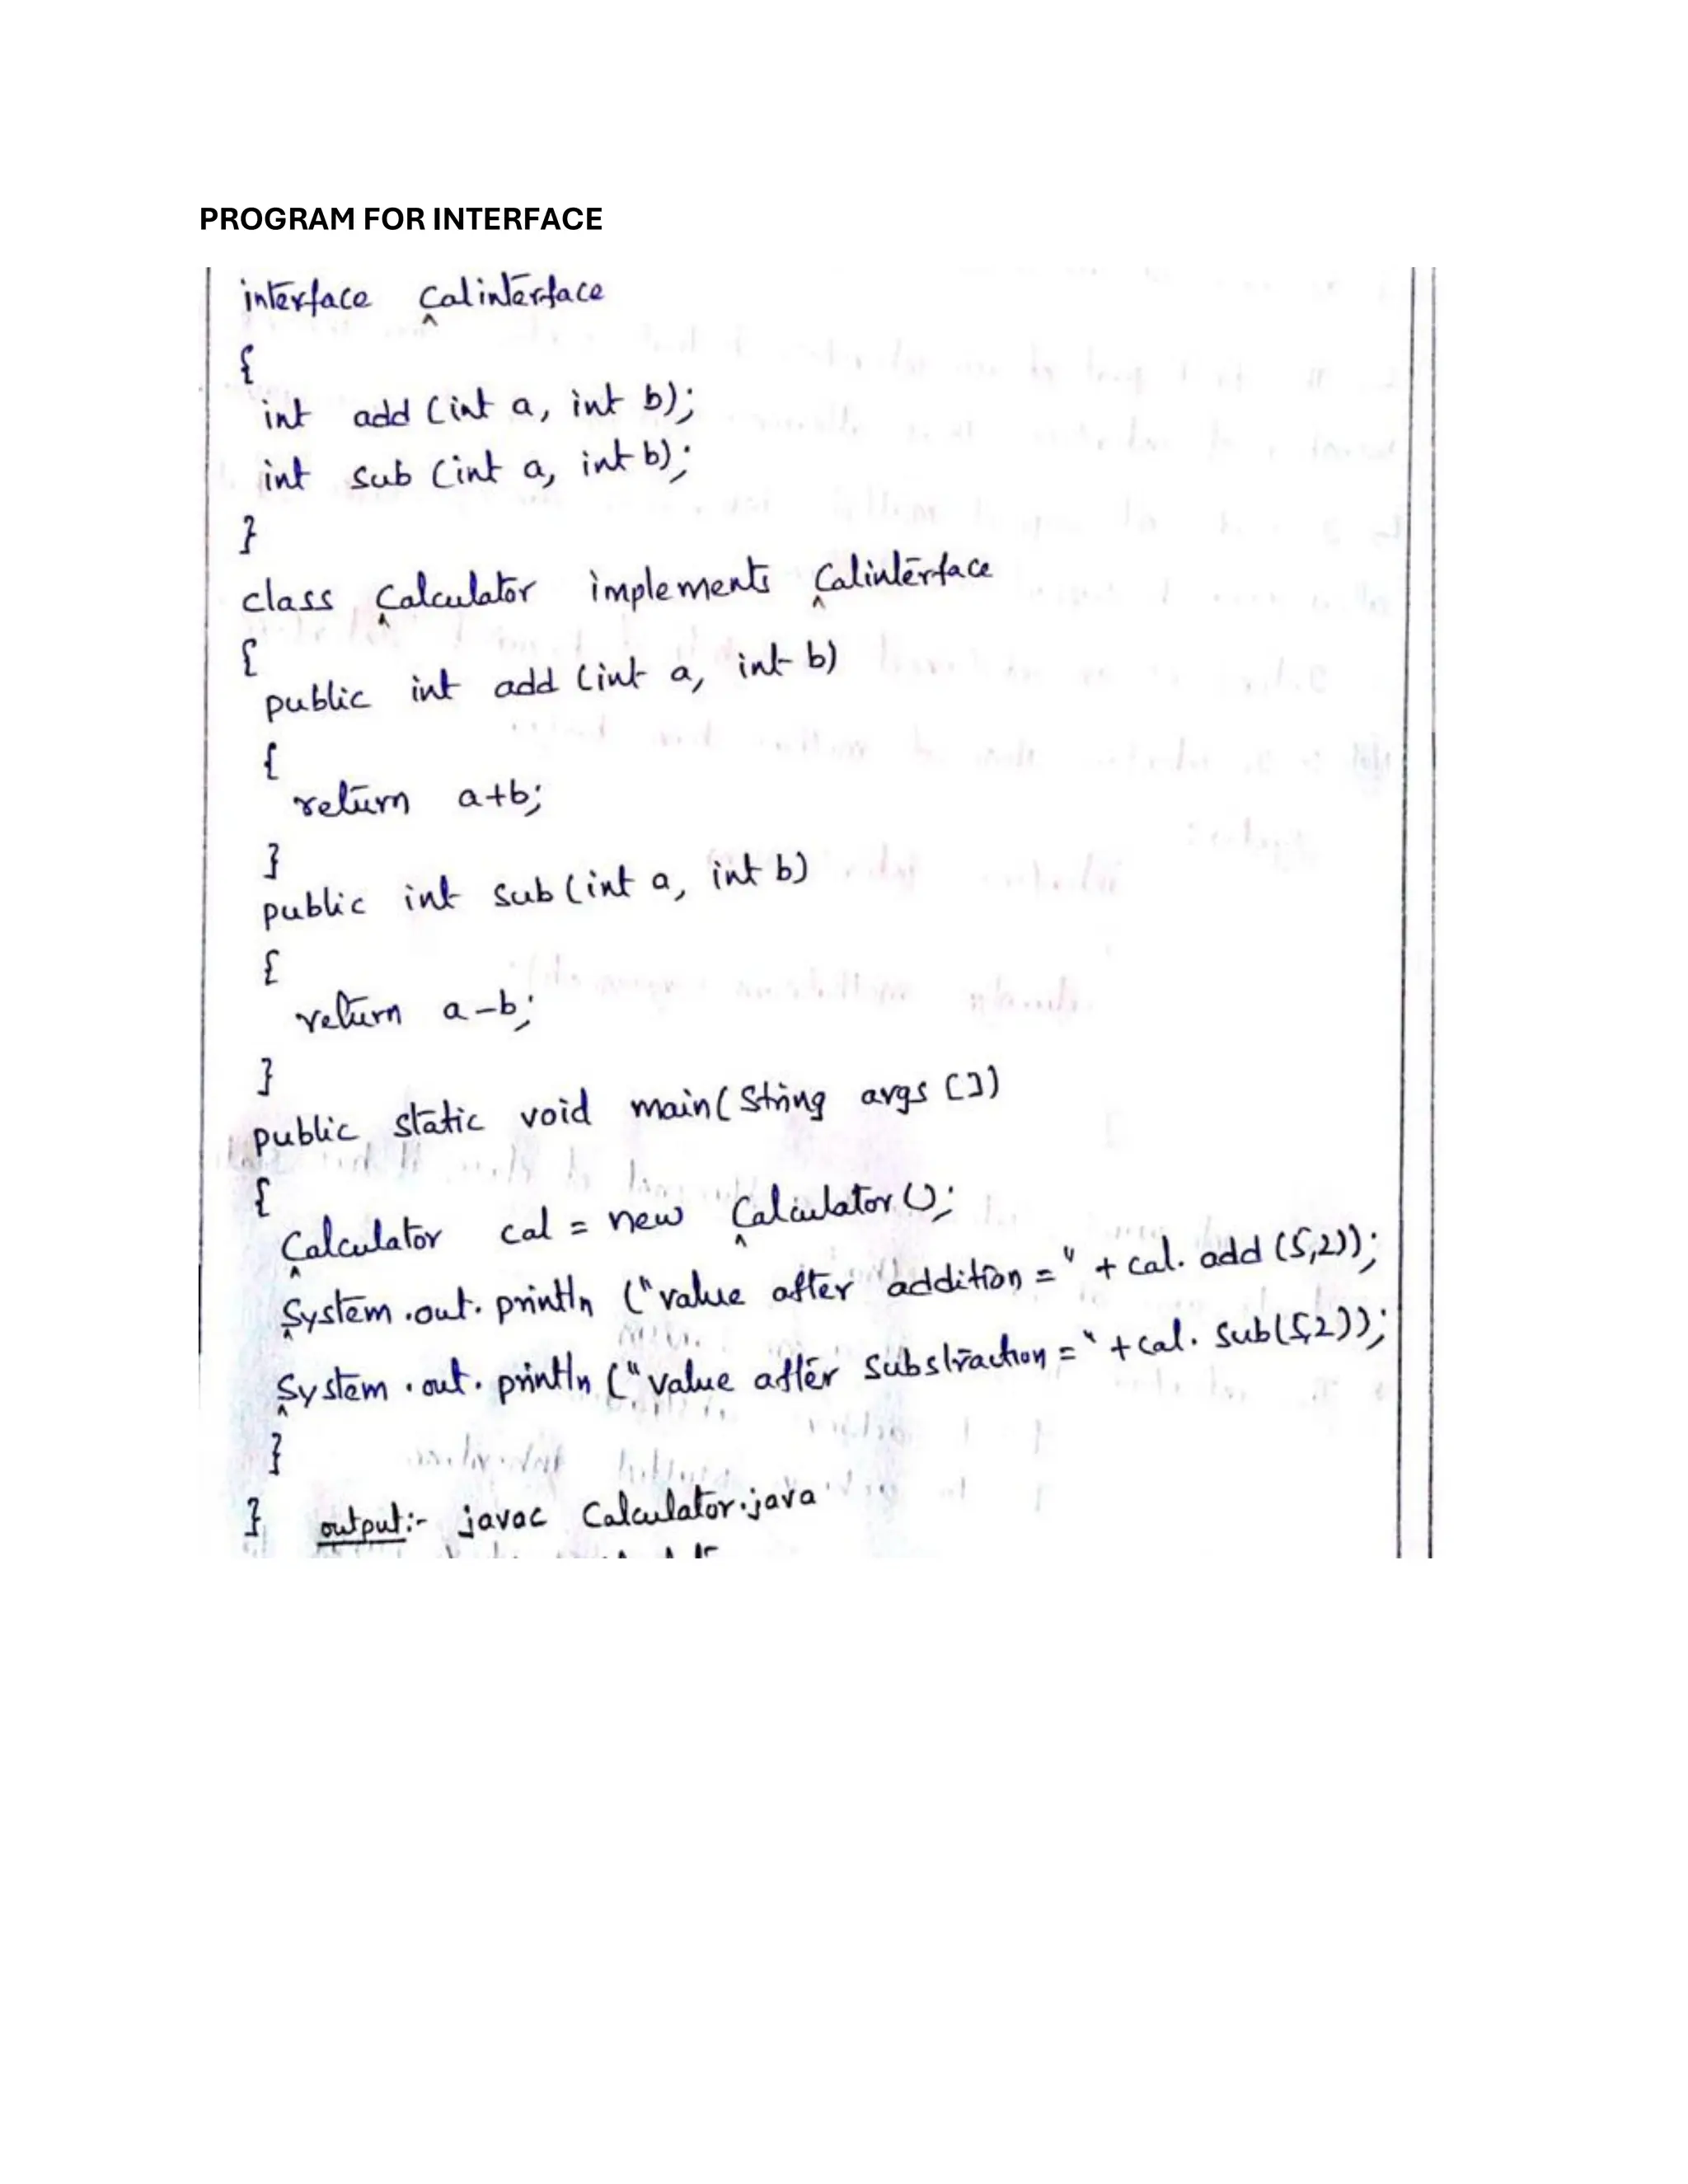 PROGRAM FOR INTERFACE
interface Calinterface
{
int add (int a, int b);
int sub (int a, int b);
}
class Calculator implements Calinterface
{
public int add (int a, int b)
{
return a+b;
}
public int sub (int a, int b)
{
return a-b;
}
public static void main(String args [])
{
Calculator cal = new Calculator();
System.out.println ("value after addition =" + cal. add (5,2));
System.out.println ("value after Substraction =" + cal. sub(5,2));
}
} output:- javac Calculator.java